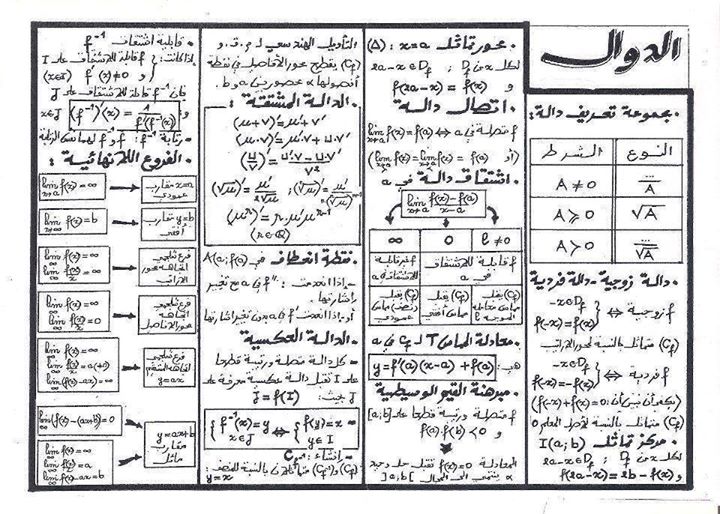 الدوال
• مجموعة تعريف دالة:
النوع | الشرط
.../A | A ≠ 0
√A | A ≥ 0
.../√A | A > 0
• دالة زوجية - دالة فردية
f زوجية ⇔ { -x∈Df
f(-x)=f(x)
(Cf) متماثل بالنسبة لمحور الأراتيب
f فردية ⇔ { -x∈Df
f(-x)=-f(x)
(f(-x)+f(x)=0: يمكن أن نبين أن)
(Cf) متماثل بالنسبة لأصل المعلم 0
• مركز تماثل I(a;b)
لكل x من Df ; 2a-x∈Df
و f(2a-x)=2b-f(x)
• محور تماثل x=a : (Δ)
لكل x من Df ; 2a-x∈Df
و f(2a-x) = f(x)
• اتصال دالة
f متصلة في a ⇔ lim x→a f(x)=f(a)
(أو lim f(x)=lim f(x) = f(a))
• اشتقاق دالة في a
lim x→a f(x)-f(a)/x-a
∞ | 0 | ℓ ≠ 0
f غير قابلة للاشتقاق في a | f قابلة للاشتقاق في a
(Cf) يقبل نصف مماس عمودي | (Cf) يقبل مماس أفقي | (Cf) يقبل مماس معامله الموجه ℓ
• معادلة المماس T لـ Cf في a
هي: y=f'(a)(x-a)+f(a)
• مبرهنة القيم الوسيطية
f متصلة ورتيبة قطعا على [a;b]
و f(a).f(b) < 0
المعادلة f(x)=0 تقبل حل وحيد
α ينتمي إلى المجال ]a;b[
التأويل الهندسي لـ م.ق.و
(Cf) يقطع محور الأفاصيل في نقطة
أفصولها α محصور بين a و b.
• الدالة المشتقة:
(u+v)'=u'+v'
(u.v)'=u'.v+u.v'
(u/v)' = u'.v-u.v'/v²
(√u)'=u'/2√u
(uʳ)'=r.u'.uʳ⁻¹
(r∈Q)
• نقطة انعطاف في A(a;f(a))
- إذا انعدمت f'' في a مع تغيير
إشارتها.
أو - إذا انعدمت f' في a دون تغيير إشارتها
• الدالة العكسية
- كل دالة متصلة ورتيبة قطعا
على I تقبل دالة عكسية معرفة على
J بحيث: J=f(I)
{ f⁻¹(x)=y
x∈J ⇔ { f(y)=x
y∈I
- إنشاء Cf⁻¹:
(Cf) و (Cf⁻¹) متماثلان بالنسبة للمنصف:
y=x
• قابلية اشتقاق f⁻¹
إذا كانت: f قابلة للاشتقاق على I
و f'(x)≠0 (x∈I)
فإن f⁻¹ قابلة للاشتقاق على J
و x∈J (f⁻¹)'(x)=1/f'(f⁻¹(x))
- رتابة f⁻¹: f و f⁻¹ لهما نفس الرتابة
• الفروع اللانهائية:
lim x→a f(x)=∞ → x=a مقارب عمودي
lim x→∞ f(x)=b → y=b مقارب أفقي
lim ∞ f(x)=∞
lim ∞ f(x)/x=∞ → فرع شلجمي اتجاهه محور الأراتيب
lim ∞ f(x)=∞
lim ∞ f(x)/x=0 → فرع شلجمي اتجاهه محور الأفاصيل
lim ∞ f(x)=∞
lim ∞ f(x)/x=a(≠0)
lim ∞ f(x)-ax=∞ → فرع شلجمي اتجاهه المستقيم y=ax
lim ∞ f(x)-(ax+b)=0
lim ∞ f(x)=∞
lim ∞ f(x)/x=a
lim ∞ f(x)-ax=b → y=ax+b مقارب مائل